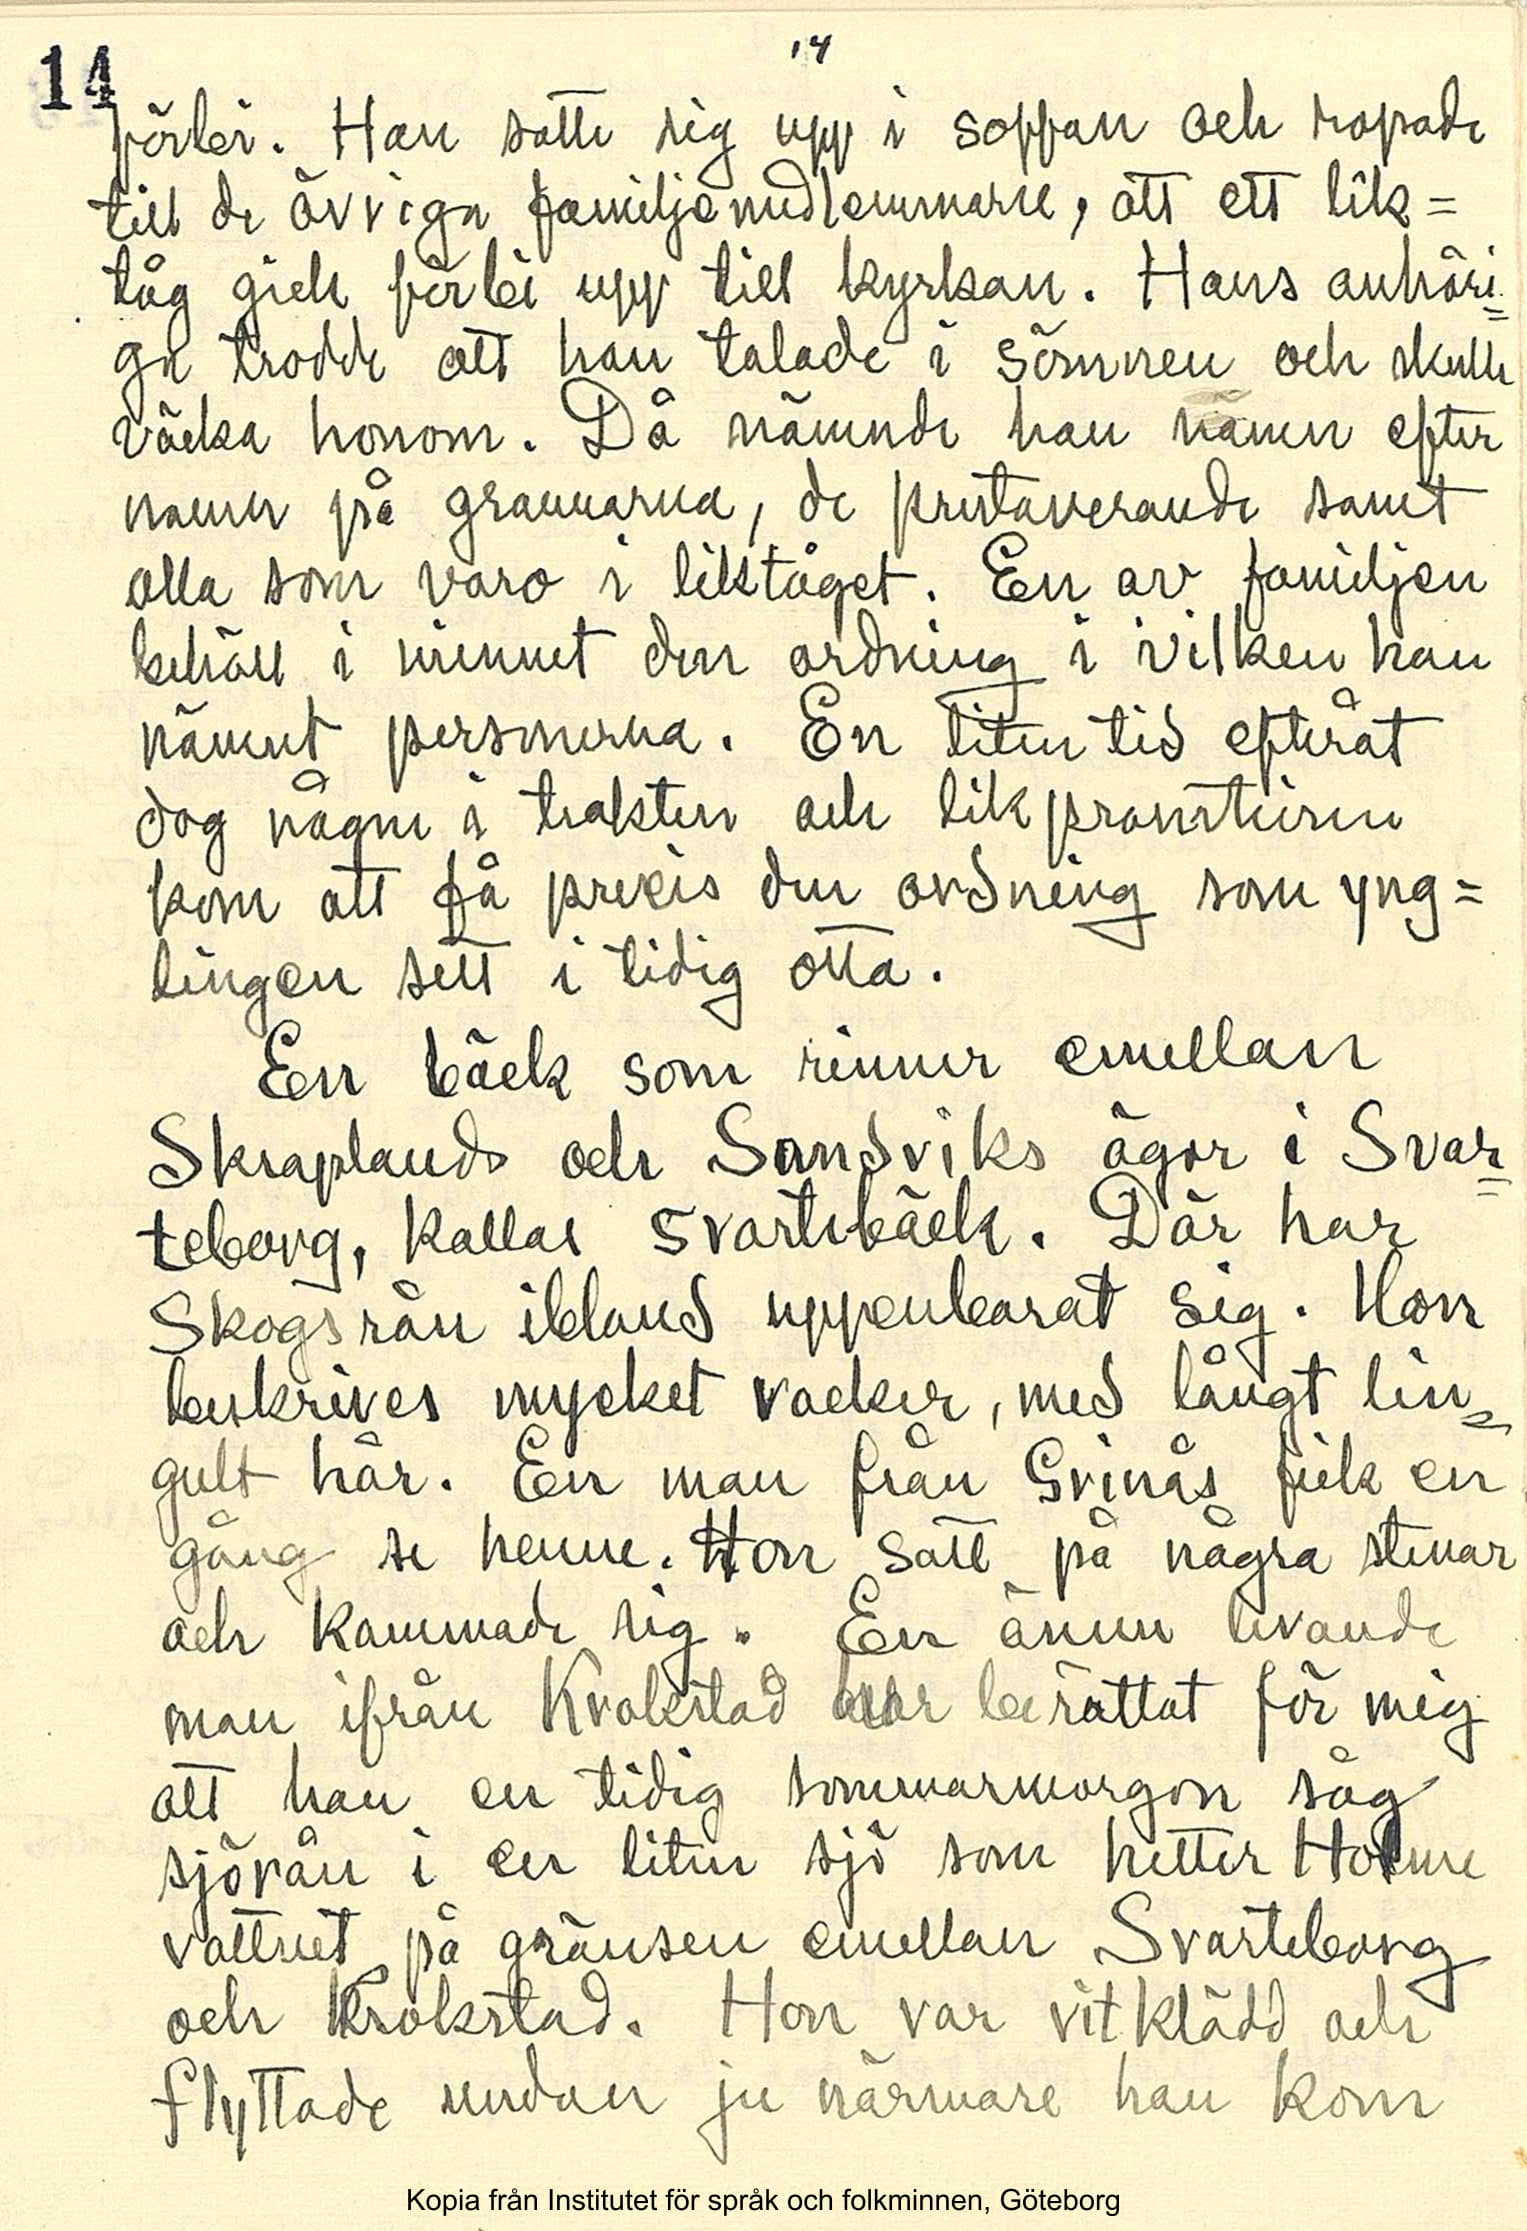 14
14
förbi. Han satte sig upp i soffan och ropade
till de övriga familjemedlemmarne, att ett lik=
tåg gick förbi upp till kyrkan. Hans anhöri=
ga trodde att han talade i sömnen och skulle
väcka honom. Då nämnde han namn efter
namn på grannarna, de prestaverande samt
alla som varo i liktåget. En av familjen
behöll i minnet den ordning i vilken han
nämnt personerna. En liten tid efteråt
dog någon i trakten och lik
kom att få precis den ordning som yng=
lingen sett i tidig otta.
En bäck som rinner emellan
Skraplands och Sandviks ägor i Svar=
teborg, kallas Svartebäck. Där har
Skogsrån ibland uppenbarat sig. Hon
beskrives mycket vacker, med långt lin=
gult hår. En man från Svinås fick en
gång se henne. Hon satt på några stenar
och kammade sig. En ännu levande
man ifrån Krokstad har berättat för mig
att han en tidig sommarmorgon såg
sjörån i en liten sjö som hetter Holme
vattnet på gränsen emellan Svarteborg
och Krokstad. Hon var vitklädd och
flyttade undan ju närmare han kom
Kopia från Institutet för språk och folkminnen, Göteborg